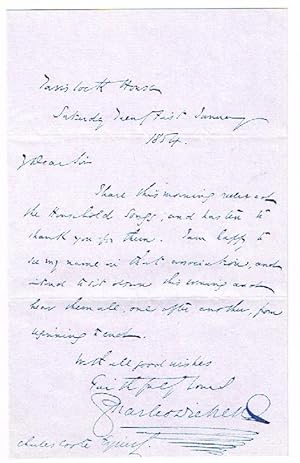 Tavistock House
Saturday Twenty First January
1854.
My Dear Sir
I have this morning received
the Household Songs, and hasten to
thank you for them. I am happy to
see my name in that association, and
intend to sit down this evening and
hear them all, one after another, from
beginning to end.
With all good wishes
Faithfully Yours
Charles Dickens
Charles Coote Esquire